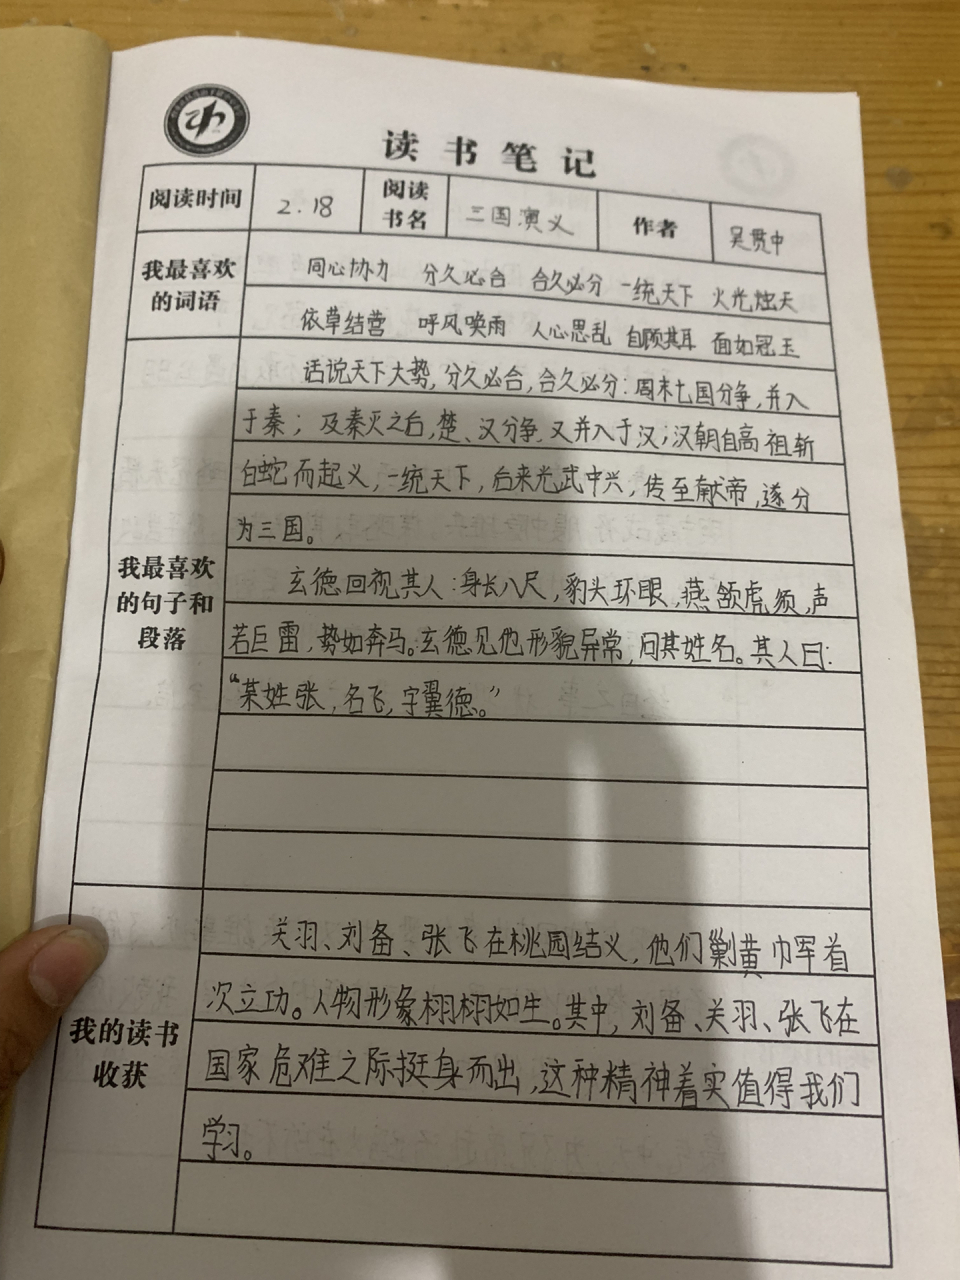 读书笔记
阅读时间 2.18 阅读书名 三国演义 作者 吴贯中
我最喜欢的词语
同心协力 分久必合 合久必分 一统天下 火光烛天
依草结营 呼风唤雨 人心思乱 自顾其耳 面如冠玉
我最喜欢的句子和段落
话说天下大势,分久必合,合久必分:周末七国分争,并入
于秦;及秦灭之后,楚、汉分争,又并入于汉;汉朝自高祖斩
白蛇而起义,一统天下,后来光武中兴,传至献帝,遂分
为三国。
玄德回视其人:身长八尺,豹头环眼,燕颔虎须,声
若巨雷,势如奔马。玄德见他形貌异常,问其姓名。其人曰:
“某姓张,名飞,字翼德。”
我的读书收获
关羽、刘备、张飞在桃园结义,他们剿黄巾军首
次立功。人物形象栩栩如生。其中,刘备、关羽、张飞在
国家危难之际挺身而出,这种精神着实值得我们
学习。